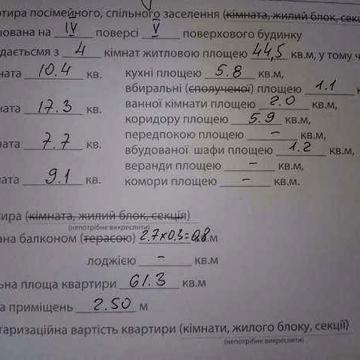 ртира посімейного, спільного заселення (кімната, жилий блок, секц
ована на IV поверсі V поверхового будинку
дається з 4 кімнат житловою площею 44,5 кв.м, у тому ч
ната 10.4 кв. кухні площею 5.8 кв.м,
вбиральні (сполученої) площею 1.1 к
ната 17.3 кв. ванної кімнати площею 2.0 кв.м,
коридору площею 5.9 кв.м,
ната 7.7 кв. передпокою площею – кв.м,
вбудованої шафи площею 1.2 кв.м
ната 9.1 кв. веранди площею – кв.м,
комори площею – кв.м.
тира (кімната, жилий блок, секція)
(непотрібне викреслити)
ана балконом (терасою) 2.7х0.3=0,8 кв.м
лоджією – кв.м
льна площа квартири 61.3 кв.м
а приміщень 2.50 м
таризаційна вартість квартири (кімнати, жилого блоку, секції)
(непотрібне викреслити)